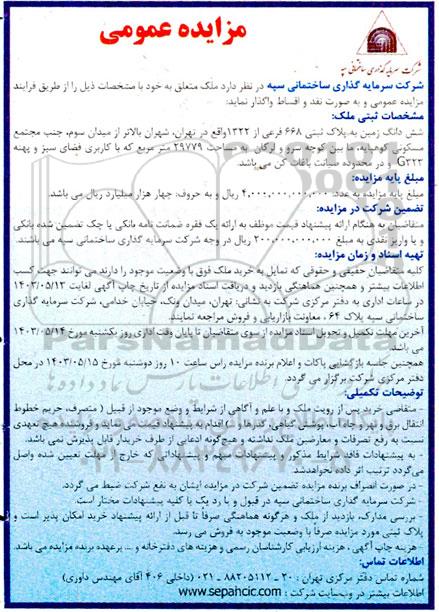 مزایده عمومی
شرکت سرمایه گذاری ساختمانی سپه
شرکت سرمایه گذاری ساختمانی سپه در نظر دارد ملک متعلق به خود با مشخصات ذیل را از طریق فرایند
مزایده عمومی و به صورت نقد و اقساط واگذار نماید:
مشخصات ثبتی ملک:
شش دانگ زمین به پلاک ثبتی ۶۶۸ فرعی از ۱۳۲۲واقع در تهران، شهران بالاتر از میدان سوم، جنب مجتمع
مسکونی کوهپایه، ما بین کوچه سرو و ارکان به مساحت ۲۹۷۷۹ متر مربع که با کاربری فضای سبز و پهنه
G۳۲۲ و در محدوده صیانت باغات کن می باشد.
مبلغ پایه مزایده:
مبلغ پایه مزایده به عدد: ۴,۰۰۰,۰۰۰,۰۰۰,۰۰۰ ریال و به حروف، چهار هزار میلیارد ریال می باشد.
تضمین شرکت در مزایده:
متقاضیان به هنگام ارائه پیشنهاد قیمت موظف به ارائه یک فقره ضمانت نامه بانکی یا چک تضمین شده بانکی
و یا واریز نقدی به مبلغ ۲۰۰,۰۰۰,۰۰۰,۰۰۰ ریال در وجه شرکت سرمایه گذاری ساختمانی سپه می باشند.
تهیه اسناد و زمان مزایده:
کلیه متقاضیان حقیقی و حقوقی که تمایل به خرید ملک فوق با وضعیت موجود را دارند می توانند جهت کسب
اطلاعات بیشتر و همچنین هماهنگی بازدید و دریافت اسناد مزایده از تاریخ چاپ آگهی لغایت ۱۴۰۳/۰۵/۱۳
در ساعات اداری به دفتر مرکزی شرکت به نشانی: تهران، میدان ونک، خیابان خدامی، شرکت سرمایه گذاری
ساختمانی سپه پلاک ۶۴ ، معاونت بازاریابی و فروش مراجعه نمایند.
آخرین مهلت تکمیل و تحویل اسناد مزایده از سوی متقاضیان تا پایان وقت اداری روز یکشنبه مورخ ۱۴۰۳/۰۵/۱۴
می باشد.
همچنین جلسه بازگشایی پاکات و اعلام برنده مزایده راس ساعت ۱۰ روز دوشنبه مورخ ۱۴۰۳/۰۵/۱۵ در محل
دفتر مرکزی شرکت برگزار می گردد.
توضیحات تکمیلی:
- متقاضی خرید پس از رویت ملک و با علم و آگاهی از شرایط و وضع موجود از قبیل ( متصرف، حریم خطوط
انتقال برق و نهر و چاه آب، پوشش گیاهی، گذرها و ..) اقدام به پیشنهاد قیمت می نماید و فروشنده هیچ تعهدی
نسبت به رفع تصرفات و معارضین ملک نداشته و هیچگونه ادعایی از طرف خریدار قابل پذیرش نمی باشد.
- به پیشنهادات فاقد شرایط مذکور و پیشنهادات مبهم و پیشنهاداتی که خارج از مهلت تعیین شده واصل
می گردد ترتیب اثر داده نخواهد شد.
- در صورت انصراف برنده مزایده تضمین شرکت در مزایده ایشان به نفع شرکت ضبط می گردد.
- شرکت سرمایه گذاری ساختمانی سپه در قبول و یا رد یک یا کلیه پیشنهادات مختار است.
- بررسی مدارک، بازدید از ملک و هرگونه هماهنگی صرفاً تا قبل از ارائه پیشنهاد خرید امکان پذیر است و
پلاک ثبتی مورد مزایده صرفاً با وضعیت موجود به فروش می رسد.
- هزینه چاپ آگهی ، هزینه ارزیابی کارشناسان رسمی و هزینه های دفترخانه و ... برعهده برنده مزایده می باشد.
اطلاعات تماس:
شماره تماس دفتر مرکزی تهران : ۲۰ - ۸۸۲۰۵۱۱۲ - ۰۲۱ (داخلی ۴۰۶ آقای مهندس داوری)
اطلاعات بیشتر در وبسایت شرکت : www.sepahcic.com